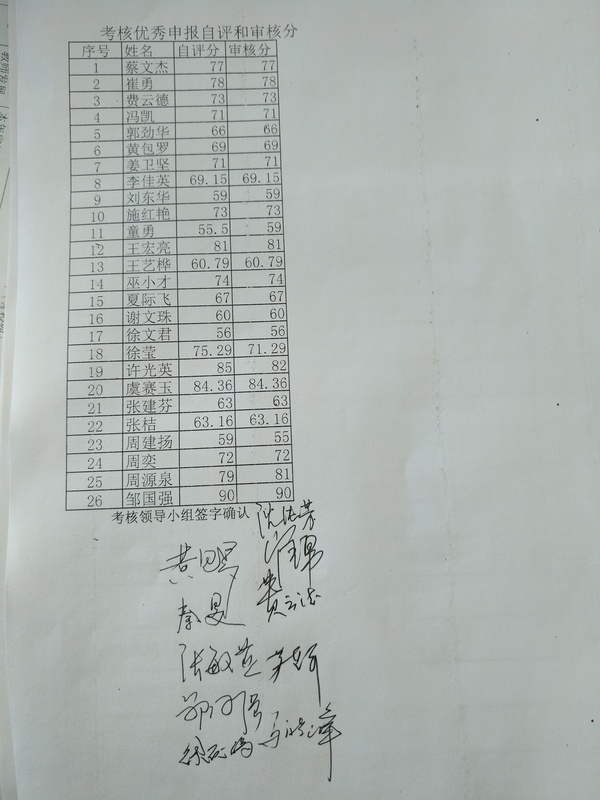 考核优秀申报自评和审核分
序号 姓名 自评分 审核分
1 蔡文杰 77 77
2 崔勇 78 78
3 费云德 73 73
4 冯凯 71 71
5 郭劲华 66 66
6 黄包罗 69 69
7 姜卫坚 71 71
8 李佳英 69.15 69.15
9 刘东华 59 59
10 施红艳 73 73
11 童勇 55.5 59
12 王宏亮 81 81
13 王艺桦 60.79 60.79
14 巫小才 74 74
15 夏际飞 67 67
16 谢文珠 60 60
17 徐文君 56 56
18 徐莹 75.29 71.29
19 许光英 85 82
20 虞赛玉 84.36 84.36
21 张建芬 63 63
22 张桔 63.16 63.16
23 周建扬 59 55
24 周奕 72 72
25 周源泉 79 81
26 邹国强 90 90
考核领导小组签字确认
黄包罗
费云德
秦昊
教师发展